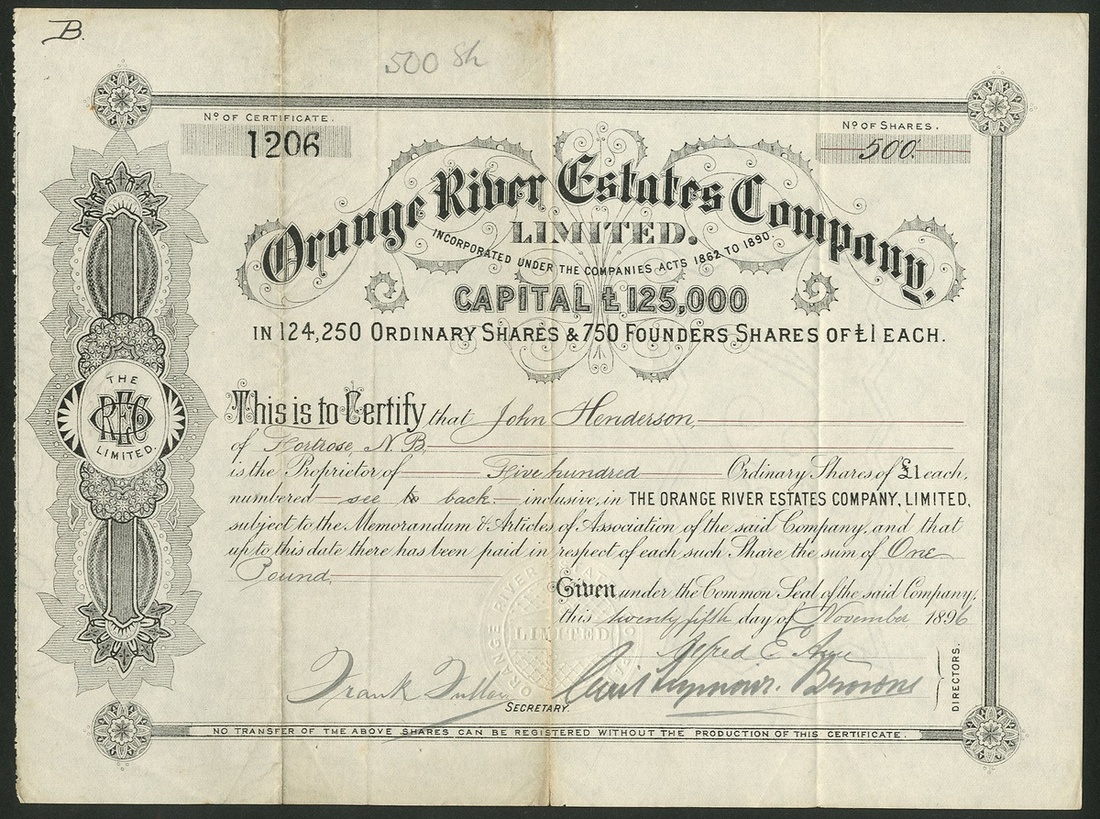 B.
500 Sh
No OF CERTIFICATE.
1206
No OF SHARES.
500.
Orange River Estates Company,
LIMITED.
INCORPORATED UNDER THE COMPANIES ACTS 1862 TO 1890.
CAPITAL £125,000
IN 124,250 ORDINARY SHARES & 750 FOUNDERS SHARES OF £1 EACH.
THE
LIMITED.
This is to Certify that John Henderson,
of Fortrose, N.B.
is the Proprietor of Five hundred Ordinary Shares of £1 each,
numbered see to back inclusive, in THE ORANGE RIVER ESTATES COMPANY, LIMITED,
subject to the Memorandum & Articles of Association of the said Company, and that
up to this date there has been paid in respect of each such Share the sum of One
Pound,
Given under the Common Seal of the said Company,
this twenty fifth day of November 1896
ORANGE RIVER
LIMITED
Alfred E.
Frank
Seymour
SECRETARY.
DIRECTORS.
NO TRANSFER OF THE ABOVE SHARES CAN BE REGISTERED WITHOUT THE PRODUCTION OF THIS CERTIFICATE.